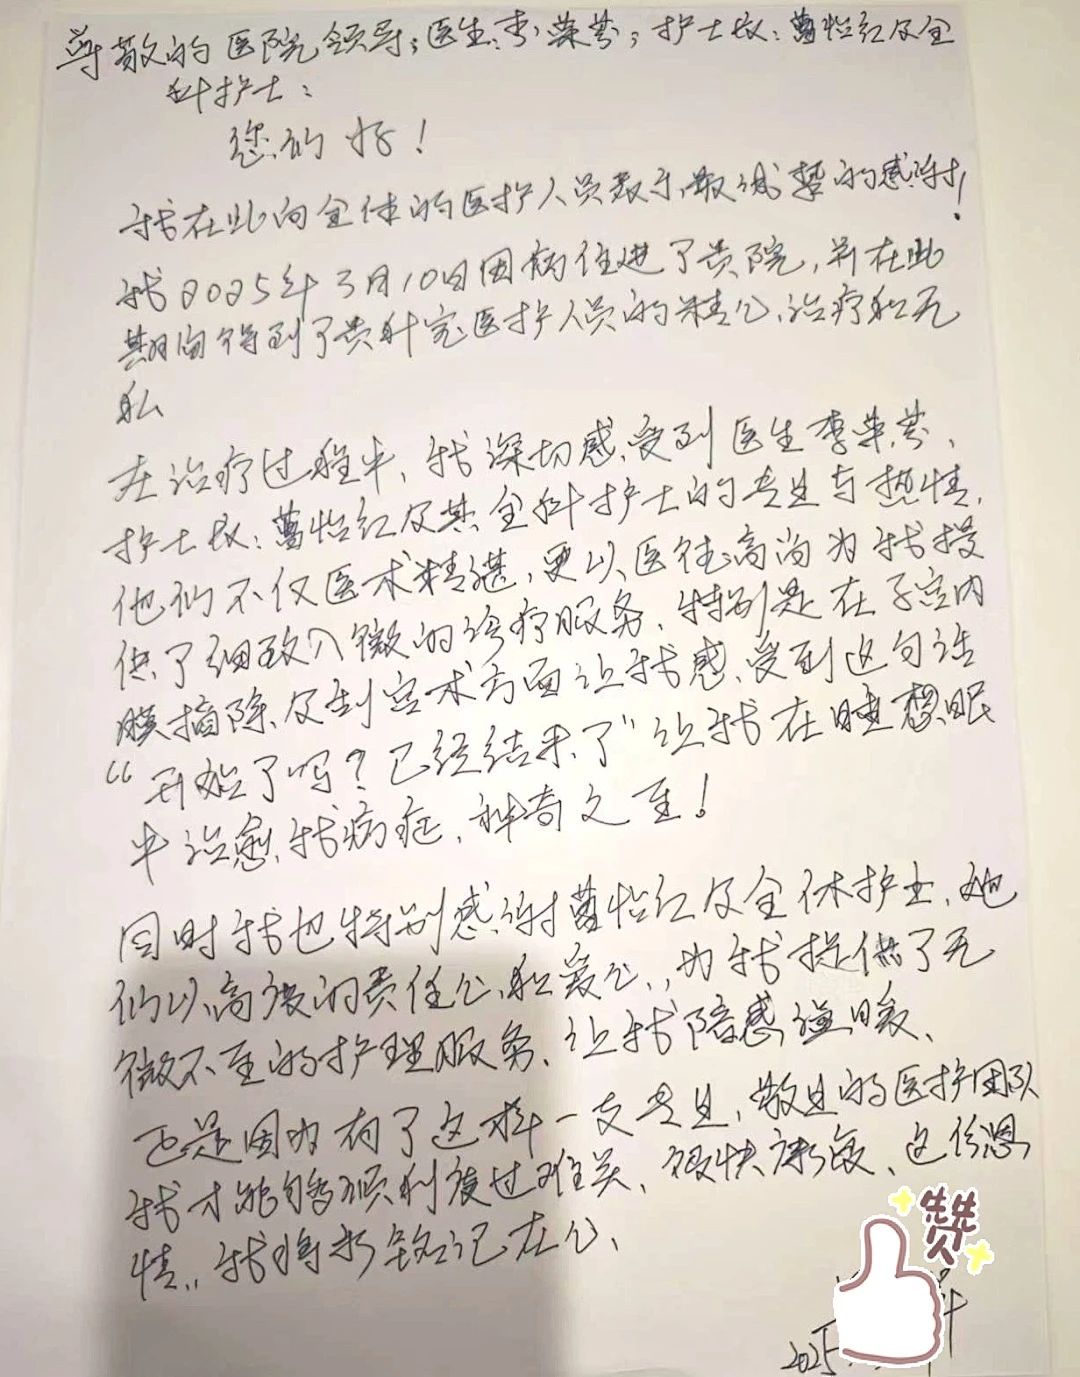 尊敬的医院领导；医生：李荣芬；护士长：曹怡红及全
科护士：
您们好！
我在此向全体的医护人员表示最诚挚的感谢！
我2025年3月10日因病住进了贵院，并在此
期间得到了贵科室医护人员的精心治疗和无
私
在治疗过程中，我深切感受到医生李荣芬、
护士长：曹怡红及其全科护士的专业与热情，
他们不仅医术精湛，更以医德高尚为我提
供了细致入微的诊疗服务，特别是在子宫内
膜摘除及刮宫术方面让我感受到这句话
“开始了吗？已经结束了”让我在睡想眠
中治愈我病症，神奇之至！
同时我也特别感谢曹怡红及全体护士，她
们以高度的责任心和爱心，为我提供了无
微不至的护理服务，让我陪感温暖、
正是因为有了这样一支专业、敬业的医护团队
我才能够顺利度过难关、很快康复、这份恩
情，我将永铭记在心、
赞
2025